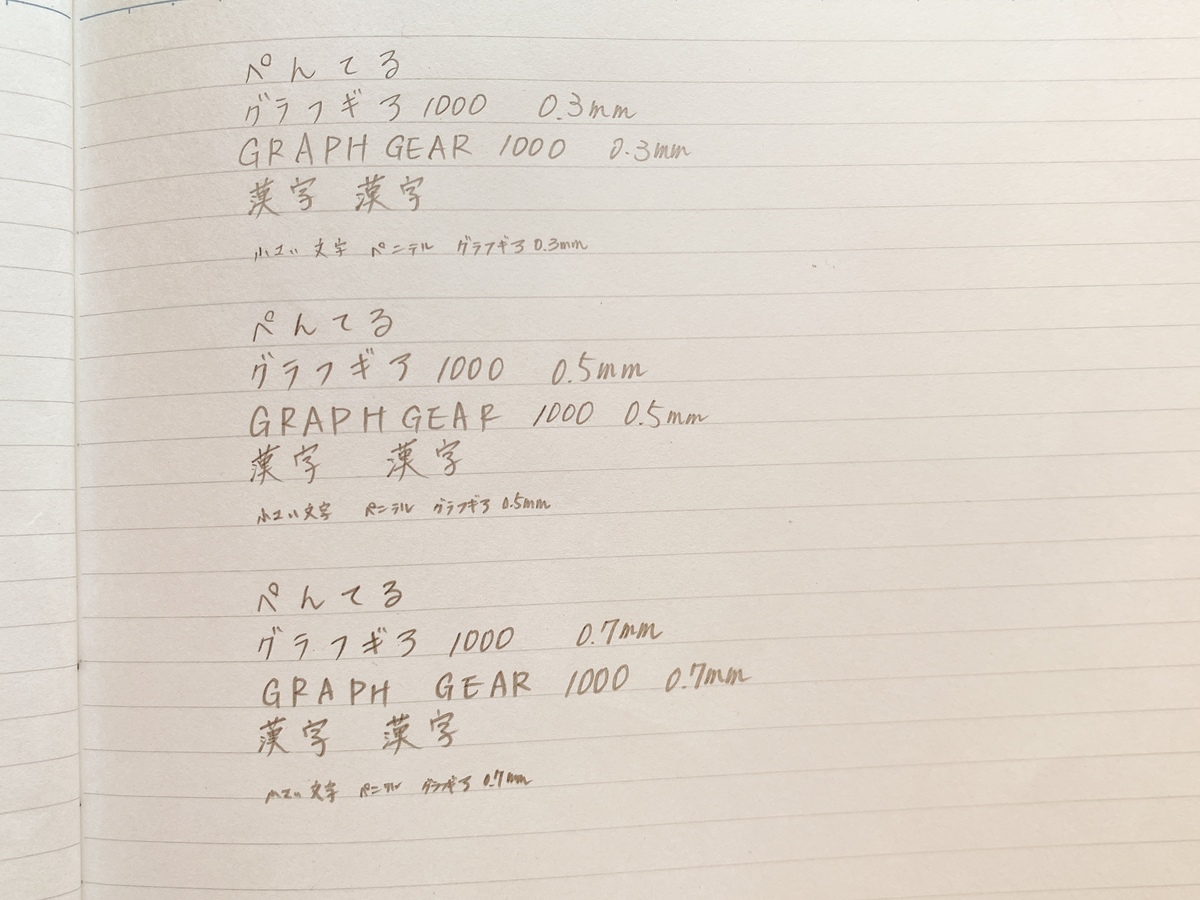 ぺんてる
グラフギア 1000 0.3mm
GRAPH GEAR 1000 0.3mm
漢字 漢字
小さい文字 ペンテル グラフギア 0.3mm
ぺんてる
グラフギア 1000 0.5mm
GRAPH GEAR 1000 0.5mm
漢字 漢字
小さい文字 ペンテル グラフギア 0.5mm
ぺんてる
グラフギア 1000 0.7mm
GRAPH GEAR 1000 0.7mm
漢字 漢字
小さい文字 ペンテル グラフギア 0.7mm